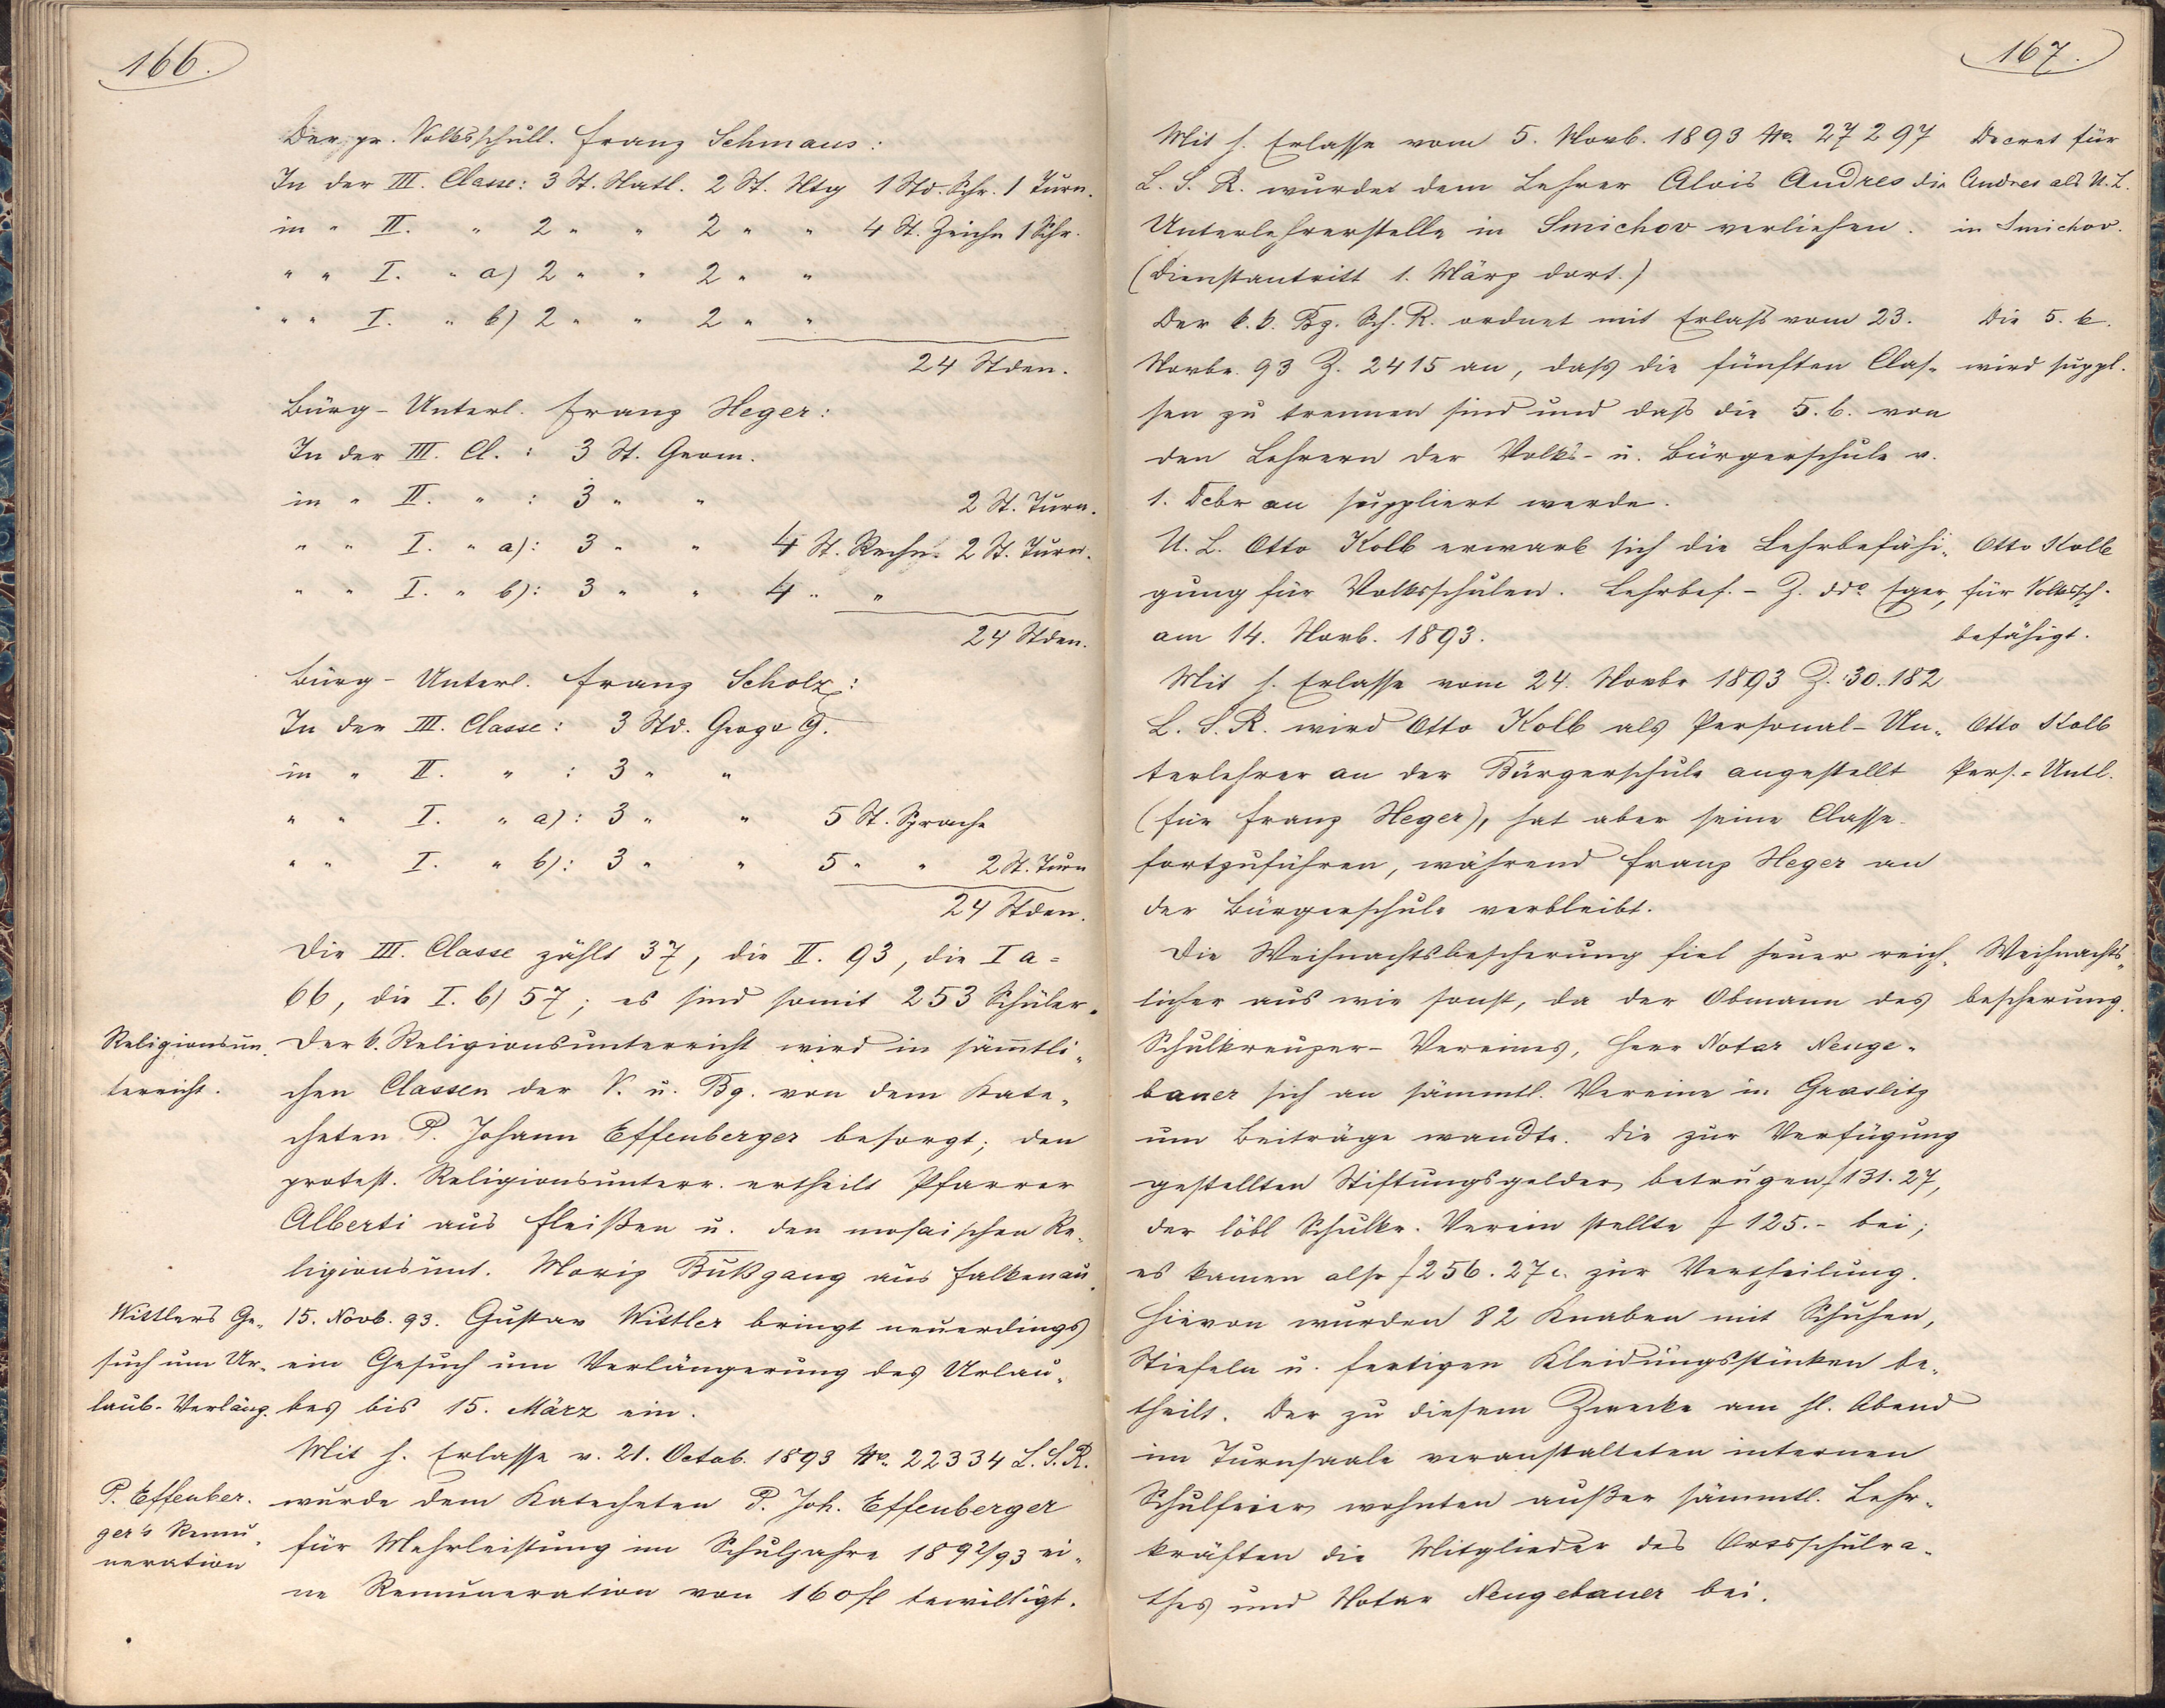 166.
Der pr. Volksschull. Franz Schmaus:
In der III. Classe: 3 St. Natl. 2 St. Ntg 1 Std. Schr. 1 Turn.
in " II. " 2 " " 2 " " 4 St. Zeichn 1 Schr.
" " I. " a) 2 " " 2 " "
" " I. " b) 2 " " 2 " "
24 Stden.
Bürg- Unterl. Franz Heger:
In der III. Cl. : 3 St. Geom.
in " II. " : 3 " " 2 St. Turn.
" " I. " a): 3 " " 4 St. Rechn. 2 St. Turn.
" " I. " b): 3 " " 4 " "
24 Stden.
Bürg- Unterl. Franz Scholz:
In der III. Classe: 3 Std. Geogr G.
in " II. " : 3 " "
" " I. " a): 3 " " 5 St. Sprache
" " I. " b): 3 " " 5 " " 2 St. Turn
24 Stden.
Die III. Classe zählt 37, die II. 93, die I a =
66, die I. b) 57; es sind somit 253 Schüler.
Religionsun-
terricht.
Der k. Religionsunterricht wird in sämtli-
chen Classen der V. u. Bg. von dem Kate-
cheten P. Johann Effenberger besorgt; den
protest. Religionsunterr. ertheilt Pfarrer
Alberti aus Fleißen u. den mosaischen Re-
ligionsunt. Moriz Bußgang aus Falkenau.
Wittlers Ge-
such um Ur-
laub-Verläng.
15. Novb. 93. Gustav Wittler bringt neuerdings
ein Gesuch um Verlängerung des Urlau-
bes bis 15. März ein.
Mit h. Erlasse v. 21. Octob. 1893 No. 22334 L. S. R.
P. Effenber-
ger's Remu-
neration
wurde dem Katecheten P. Joh. Effenberger
für Mehrleistung im Schuljahre 1892/93 ei-
ne Remuneration von 160 fl bewilligt.
167.
Mit h. Erlasse vom 5. Novb. 1893 No. 27297
L. S. R. wurde dem Lehrer Alois Andres die
Unterlehrerstelle in Smichov verliehen.
(Dienstantritt 1. März dort.)
Decret für
Andres als U. L.
in Smichov.
Der k. k. Bz. Sch. R. ordnet mit Erlaß vom 23.
Novbr. 93 Z. 2415 an, daß die fünften Clas-
sen zu trennen sind und daß die 5. b. von
den Lehrern der Volks- u. Bürgerschule v.
1. Dcbr an suppliert werde.
Die 5. b.
wird suppl.
U. L. Otto Kolb erwarb sich die Lehrbefähi-
gung für Volksschulen. Lehrbef. - Z. ddo Eger,
am 14. Novb. 1893.
Otto Kolb
für Volkssch.
befähigt.
Mit h. Erlasse vom 24. Novbr 1893 Z. 30.182
L. S. R. wird Otto Kolb als Personal-Un-
terlehrer an der Bürgerschule angestellt
(für Franz Heger), hat aber seine Classe
fortzuführen, während Franz Heger an
der Bürgerschule verbleibt.
Otto Kolb
Pers.-Untl.
Die Weihnachtsbescherung fiel heuer reich-
licher aus wie sonst, da der Obmann des
Schulkreuzer-Vereines, Herr Notar Neuge-
bauer sich an sämmtl. Vereine in Graslitz
um Beiträge wandte. Die zur Verfügung
gestellten Stiftungsgelder betrugen f 131.27,
der löbl Schulkr. Verein stellte f 125.- bei;
es kamen also f 256.27 c. zur Vertheilung.
Hievon wurden 82 Knaben mit Schuhen,
Stiefeln u. fertigen Kleidungsstücken be-
theilt. Der zu diesem Zwecke am hl. Abend
im Turnsaale veranstalteten internen
Schulfeier wohnten außer sämmtl. Lehr-
kräften die Mitglieder des Ortsschulra-
thes und Notar Neugebauer bei.
Weihnachts-
bescherung.